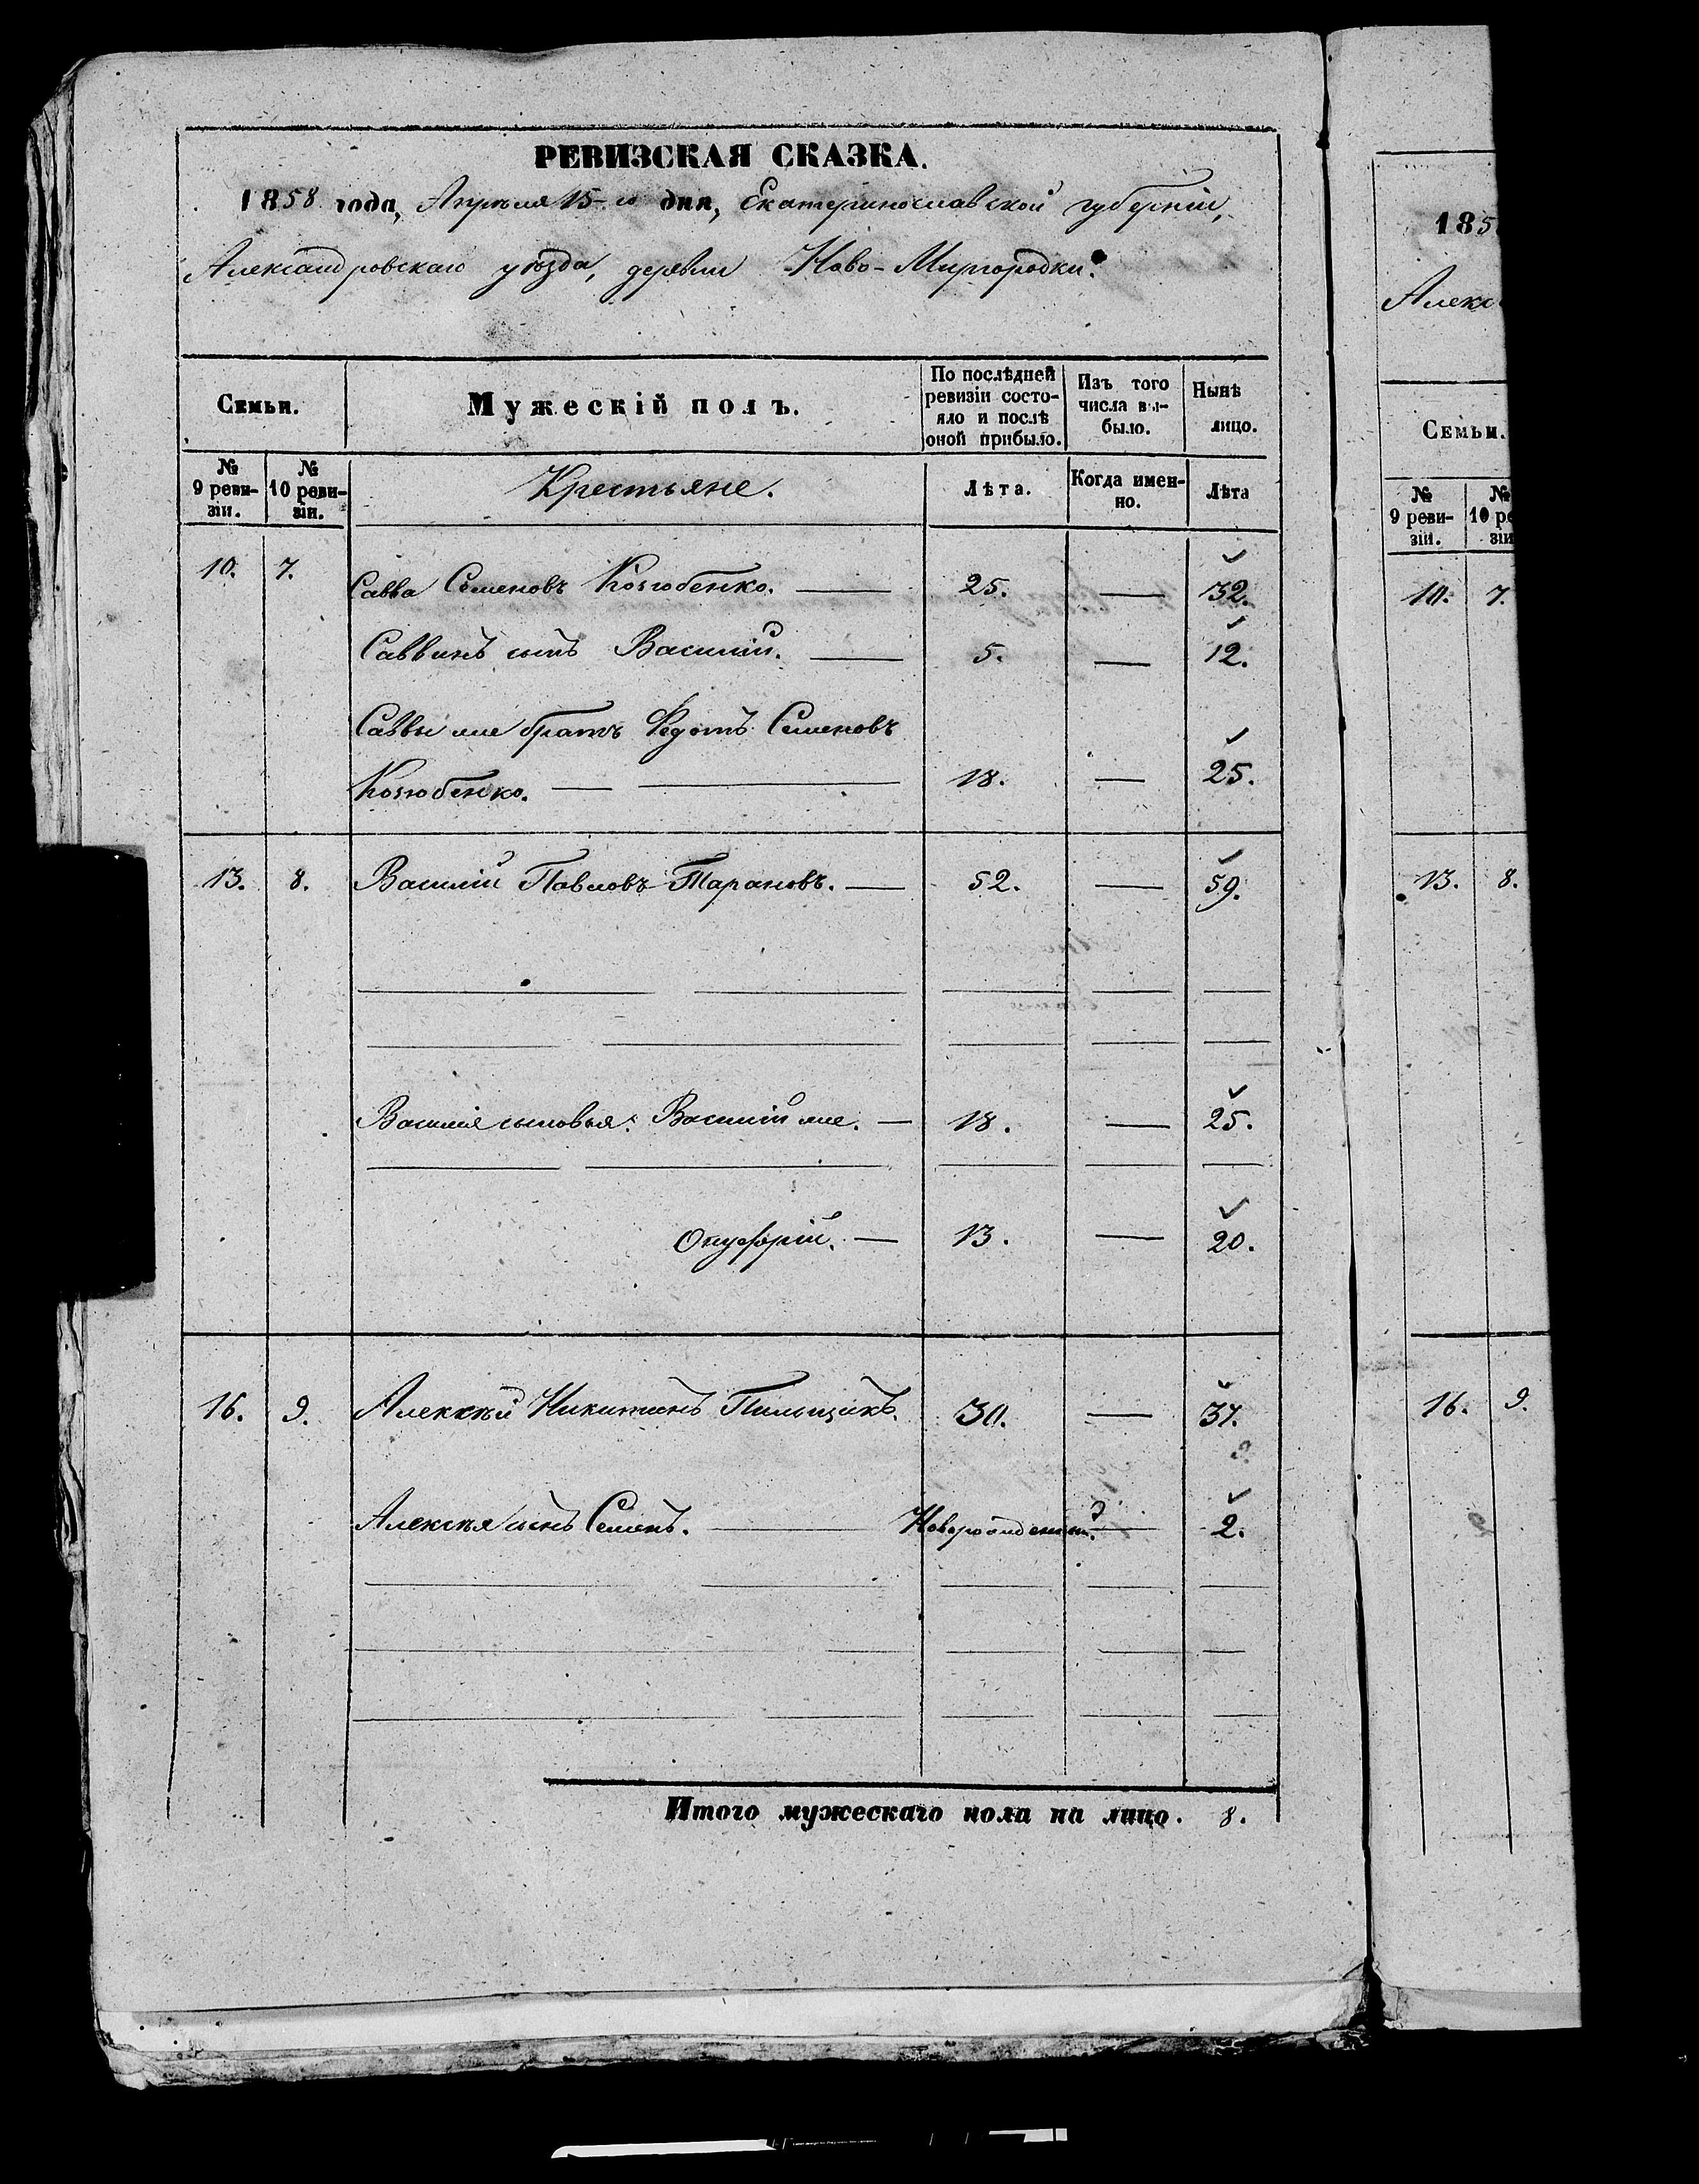 РЕВИЗСКАЯ СКАЗКА.
1858 года, Апрѣля 15-го дня, Екатеринославской губерніи,
Александровскаго уѣзда, деревни Ново-Миргородки.
Семьи. Мужескій полъ. По послѣдней ревизіи состояло и послѣ оной прибыло. Изъ того числа выбыло. Нынѣ лицо.
№ 9 ревизіи. № 10 ревизіи. Крестьяне. Лѣта. Когда именно. Лѣта
10. 7. Савва Семеновъ Козюбенко. — 25. — 32.
Саввинъ сынъ Василій. — 5. — 12.
Саввы же братъ Федотъ Семеновъ
Козюбенко. — 18. — 25.
13. 8. Василій Павловъ Тарановъ. — 52. — 59.
Василія сыновья: Василій же. — 18. — 25.
Онуфрій. — 13. — 20.
16. 9. Алексѣй Никитинъ Пильщикъ. 30. — 37.
Алексѣя сынъ Семенъ. — Новорожденный. — 2.
Итого мужескаго пола на лицо. 8.
185
Алекс
Семьи.
№ 9 ревизіи. № 10 ре
10. 7.
13. 8.
16. 9.